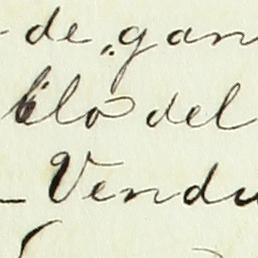 de "gan
lo del
Vendu